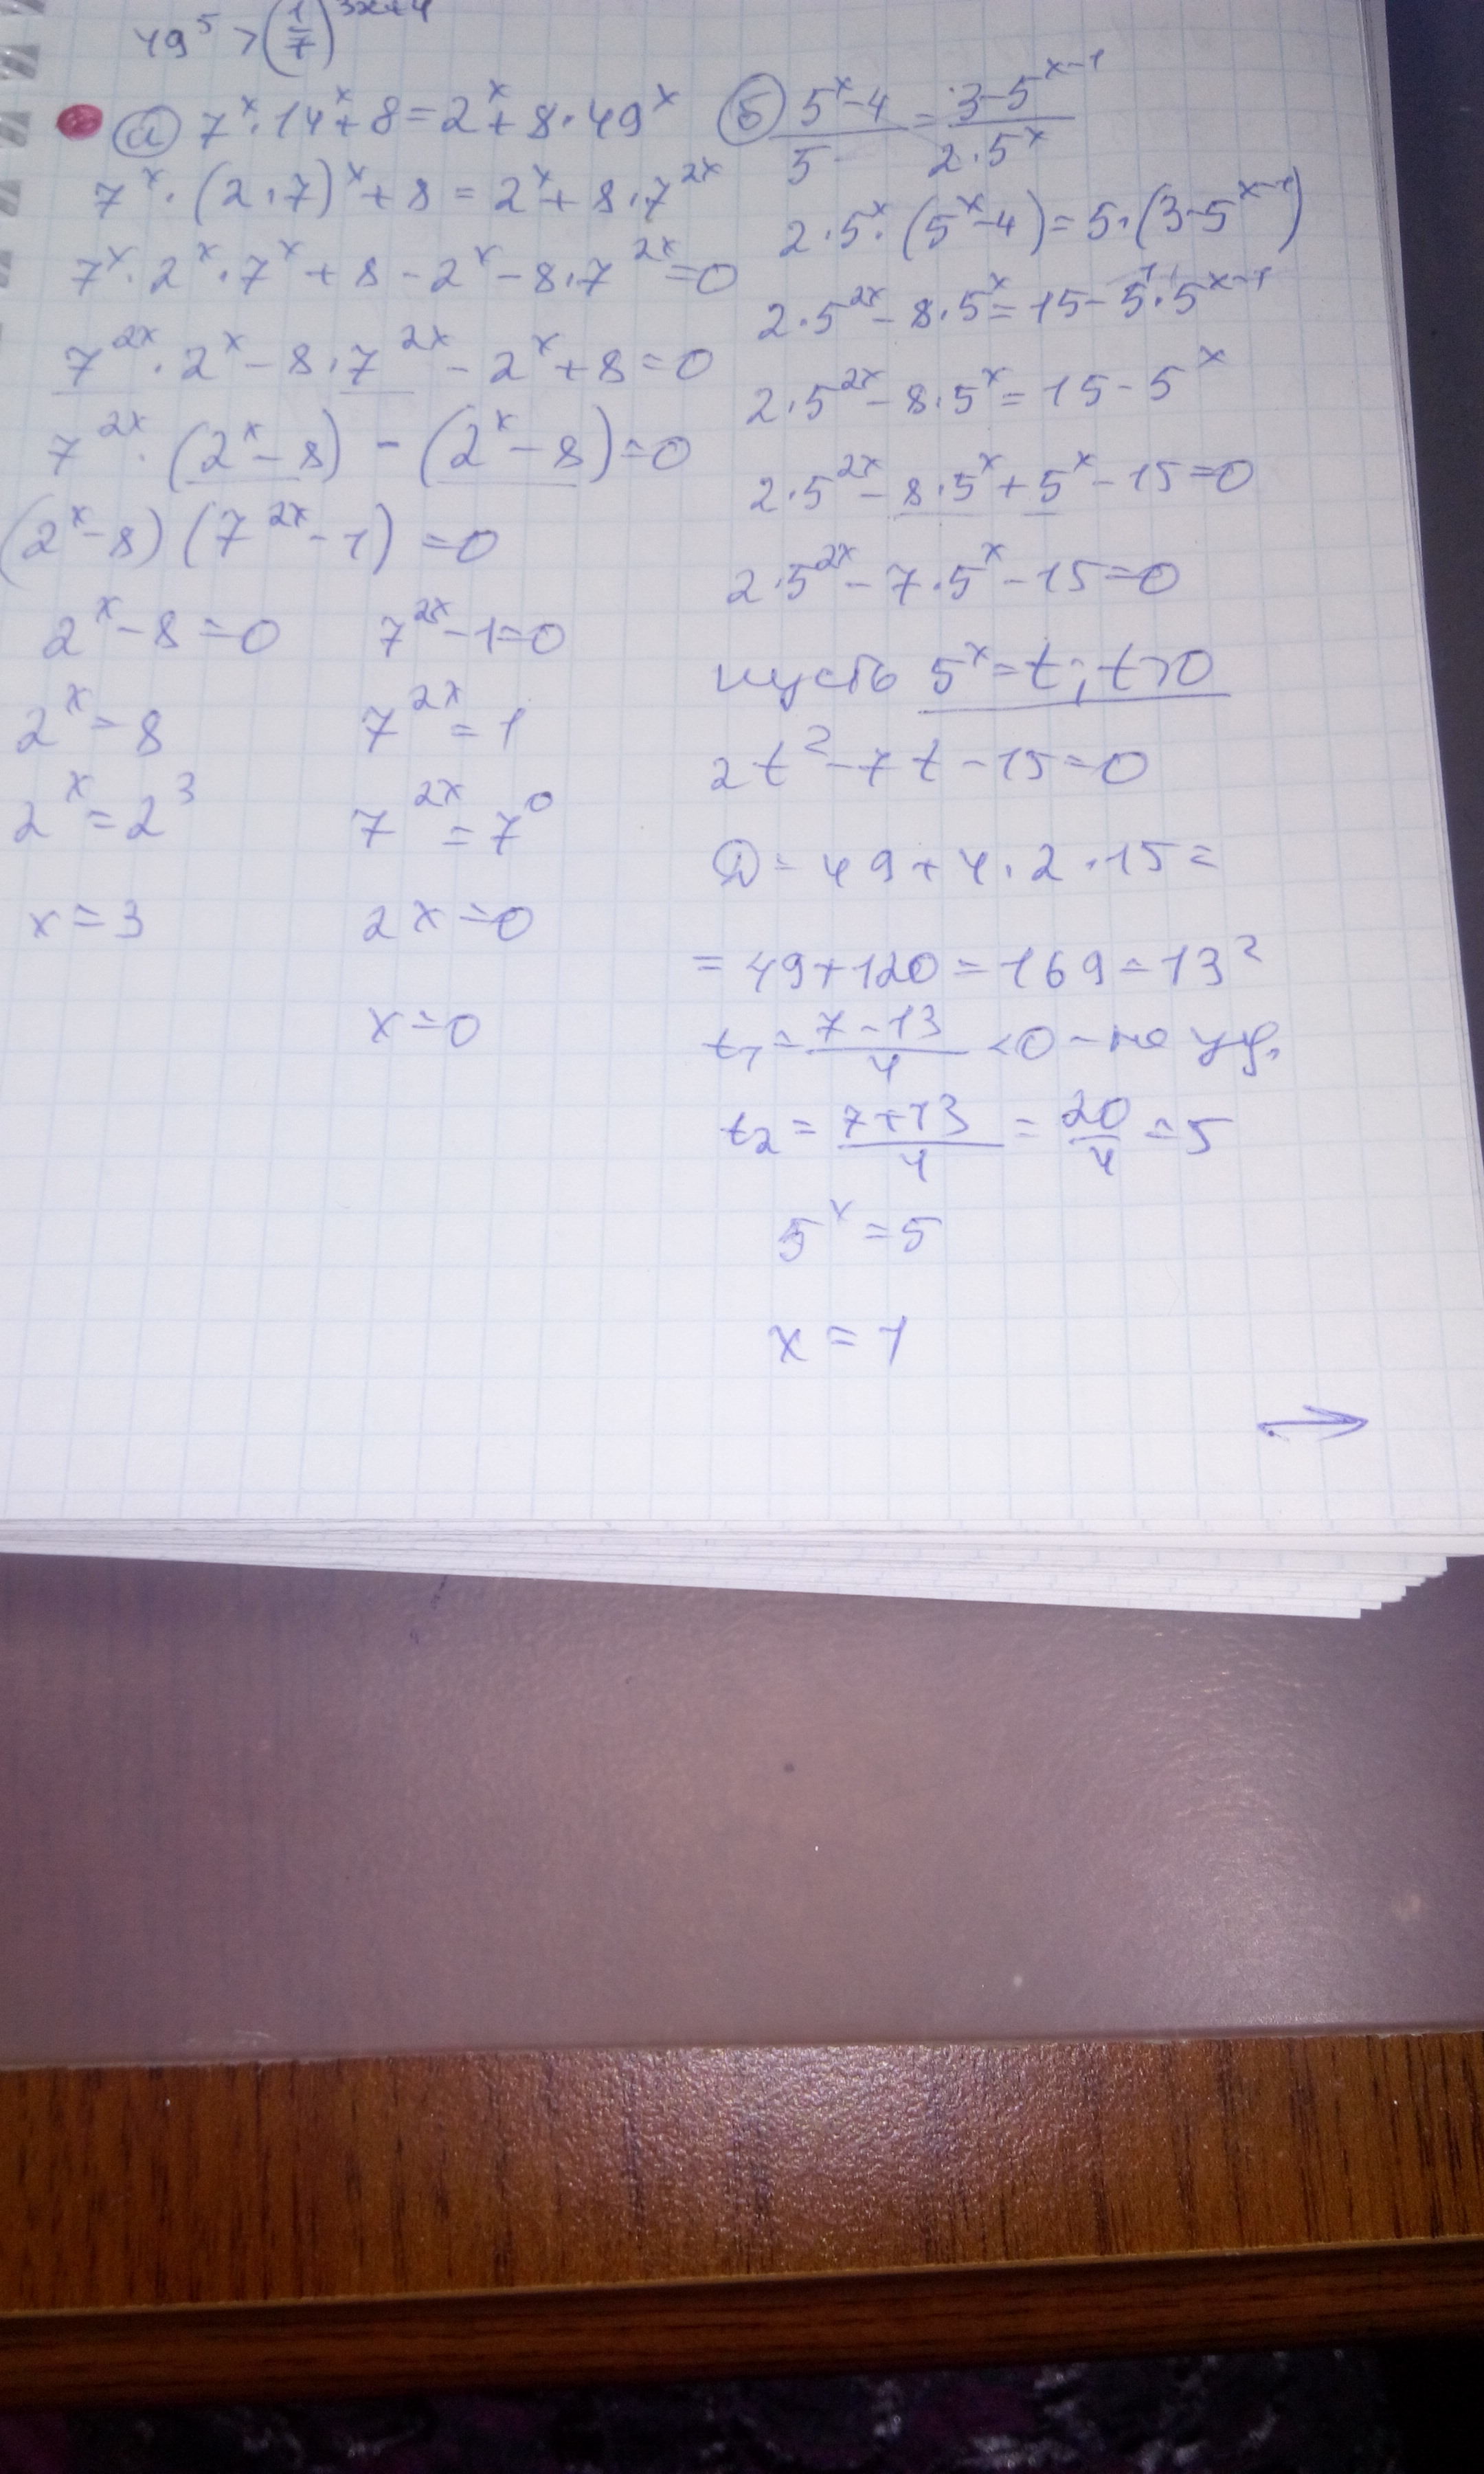 49⁵ > (1/7)^(3x+4)
а) 7^x · 14^x + 8 = 2^x + 8 · 49^x
7^x · (2 · 7)^x + 8 = 2^x + 8 · 7^(2x)
7^x · 2^x · 7^x + 8 - 2^x - 8 · 7^(2x) = 0
7^(2x) · 2^x - 8 · 7^(2x) - 2^x + 8 = 0
7^(2x) · (2^x - 8) - (2^x - 8) = 0
(2^x - 8) (7^(2x) - 1) = 0
2^x - 8 = 0    7^(2x) - 1 = 0
2^x = 8    7^(2x) = 1
2^x = 2³    7^(2x) = 7⁰
x = 3    2x = 0
x = 0
б) (5^x - 4)/5 = (3 - 5^(x-1))/(2 · 5^x)
2 · 5^x · (5^x - 4) = 5 · (3 - 5^(x-1))
2 · 5^(2x) - 8 · 5^x = 15 - 5¹ · 5^(x-1)
2 · 5^(2x) - 8 · 5^x = 15 - 5^x
2 · 5^(2x) - 8 · 5^x + 5^x - 15 = 0
2 · 5^(2x) - 7 · 5^x - 15 = 0
пусть 5^x = t; t > 0
2t² - 7t - 15 = 0
D = 49 + 4 · 2 · 15 =
= 49 + 120 = 169 = 13²
t₁ = (7 - 13)/4 < 0 - не уд.
t₂ = (7 + 13)/4 = 20/4 = 5
5^x = 5
x = 1
→